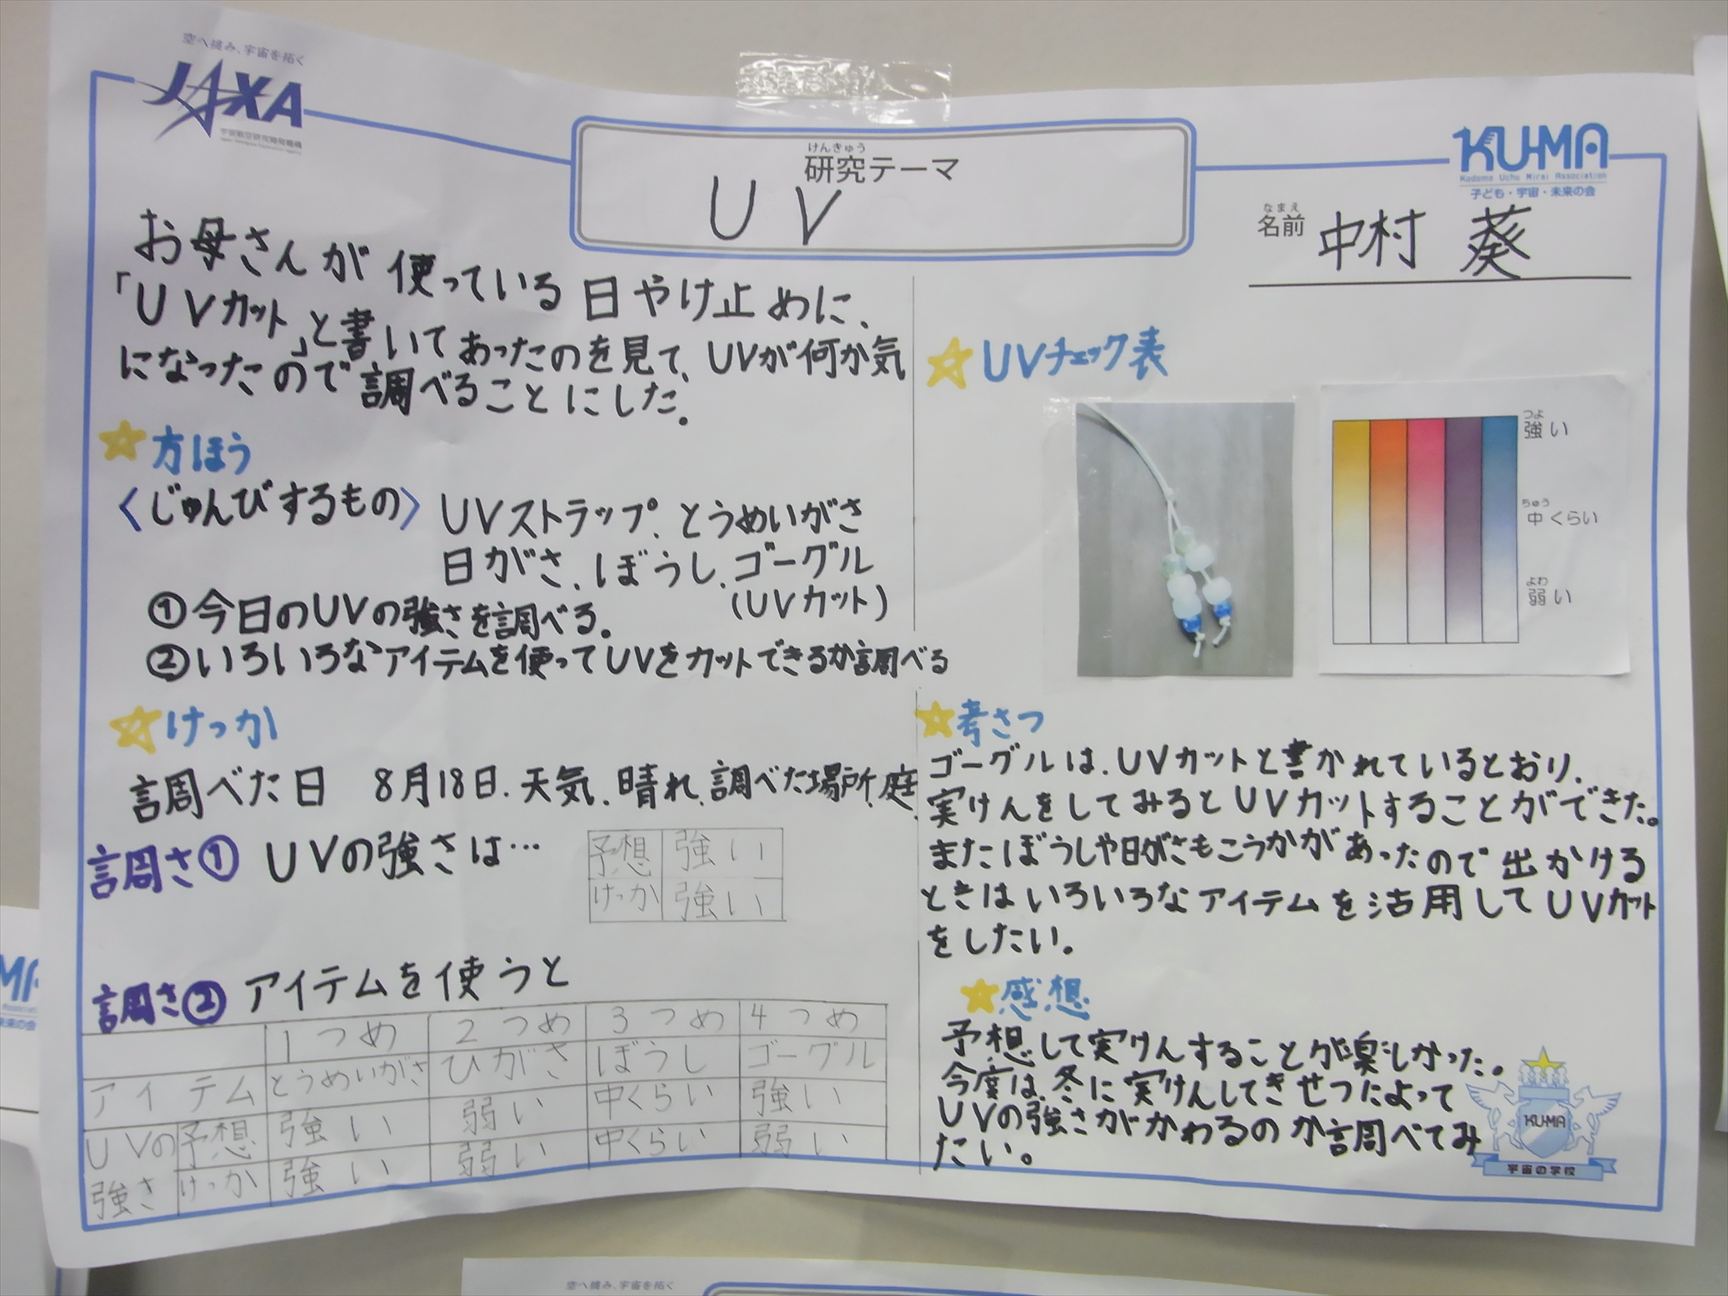 空へ挑み、宇宙を拓く
JAXA
宇宙航空研究開発機構
Japan Aerospace Exploration Agency
けんきゅう
研究テーマ
UV
KU-MA
Kodomo Uchu Mirai Association
子ども・宇宙・未来の会
なまえ
名前 中村 葵
お母さんが使っている日やけ止めに、
「UVカット」と書いてあったのを見て、UVが何か気
になったので調べることにした。
方ほう
〈じゅんびするもの〉UVストラップ、とうめいがさ
日がさ、ぼうし、ゴーグル
(UVカット)
①今日のUVの強さを調べる。
②いろいろなアイテムを使ってUVをカットできるか調べる
けっか
調べた日 8月18日、天気、晴れ、調べた場所、庭
調さ① UVの強さは…
予想 強い
けっか 強い
調さ② アイテムを使うと
1つめ 2つめ 3つめ 4つめ
アイテム とうめいがさ ひがさ ぼうし ゴーグル
UVの強さ 予想 強い 弱い 中くらい 強い
けっか 強い 弱い 中くらい 弱い
UVチェック表
つよ
強い
ちゅう
中くらい
よわ
弱い
考さつ
ゴーグルは、UVカットと書かれているとおり、
実けんをしてみるとUVカットすることができた。
またぼうしや日がさもこうかがあったので出かける
ときはいろいろなアイテムを活用してUVカット
をしたい。
感想
予想して実けんすることが楽しかった。
今度は、冬に実けんしてきせつによって
UVの強さがかわるのか調べてみ
たい。
KU-MA
宇宙の学校
MA
Association
未来の会
空へ挑み、宇宙を拓く